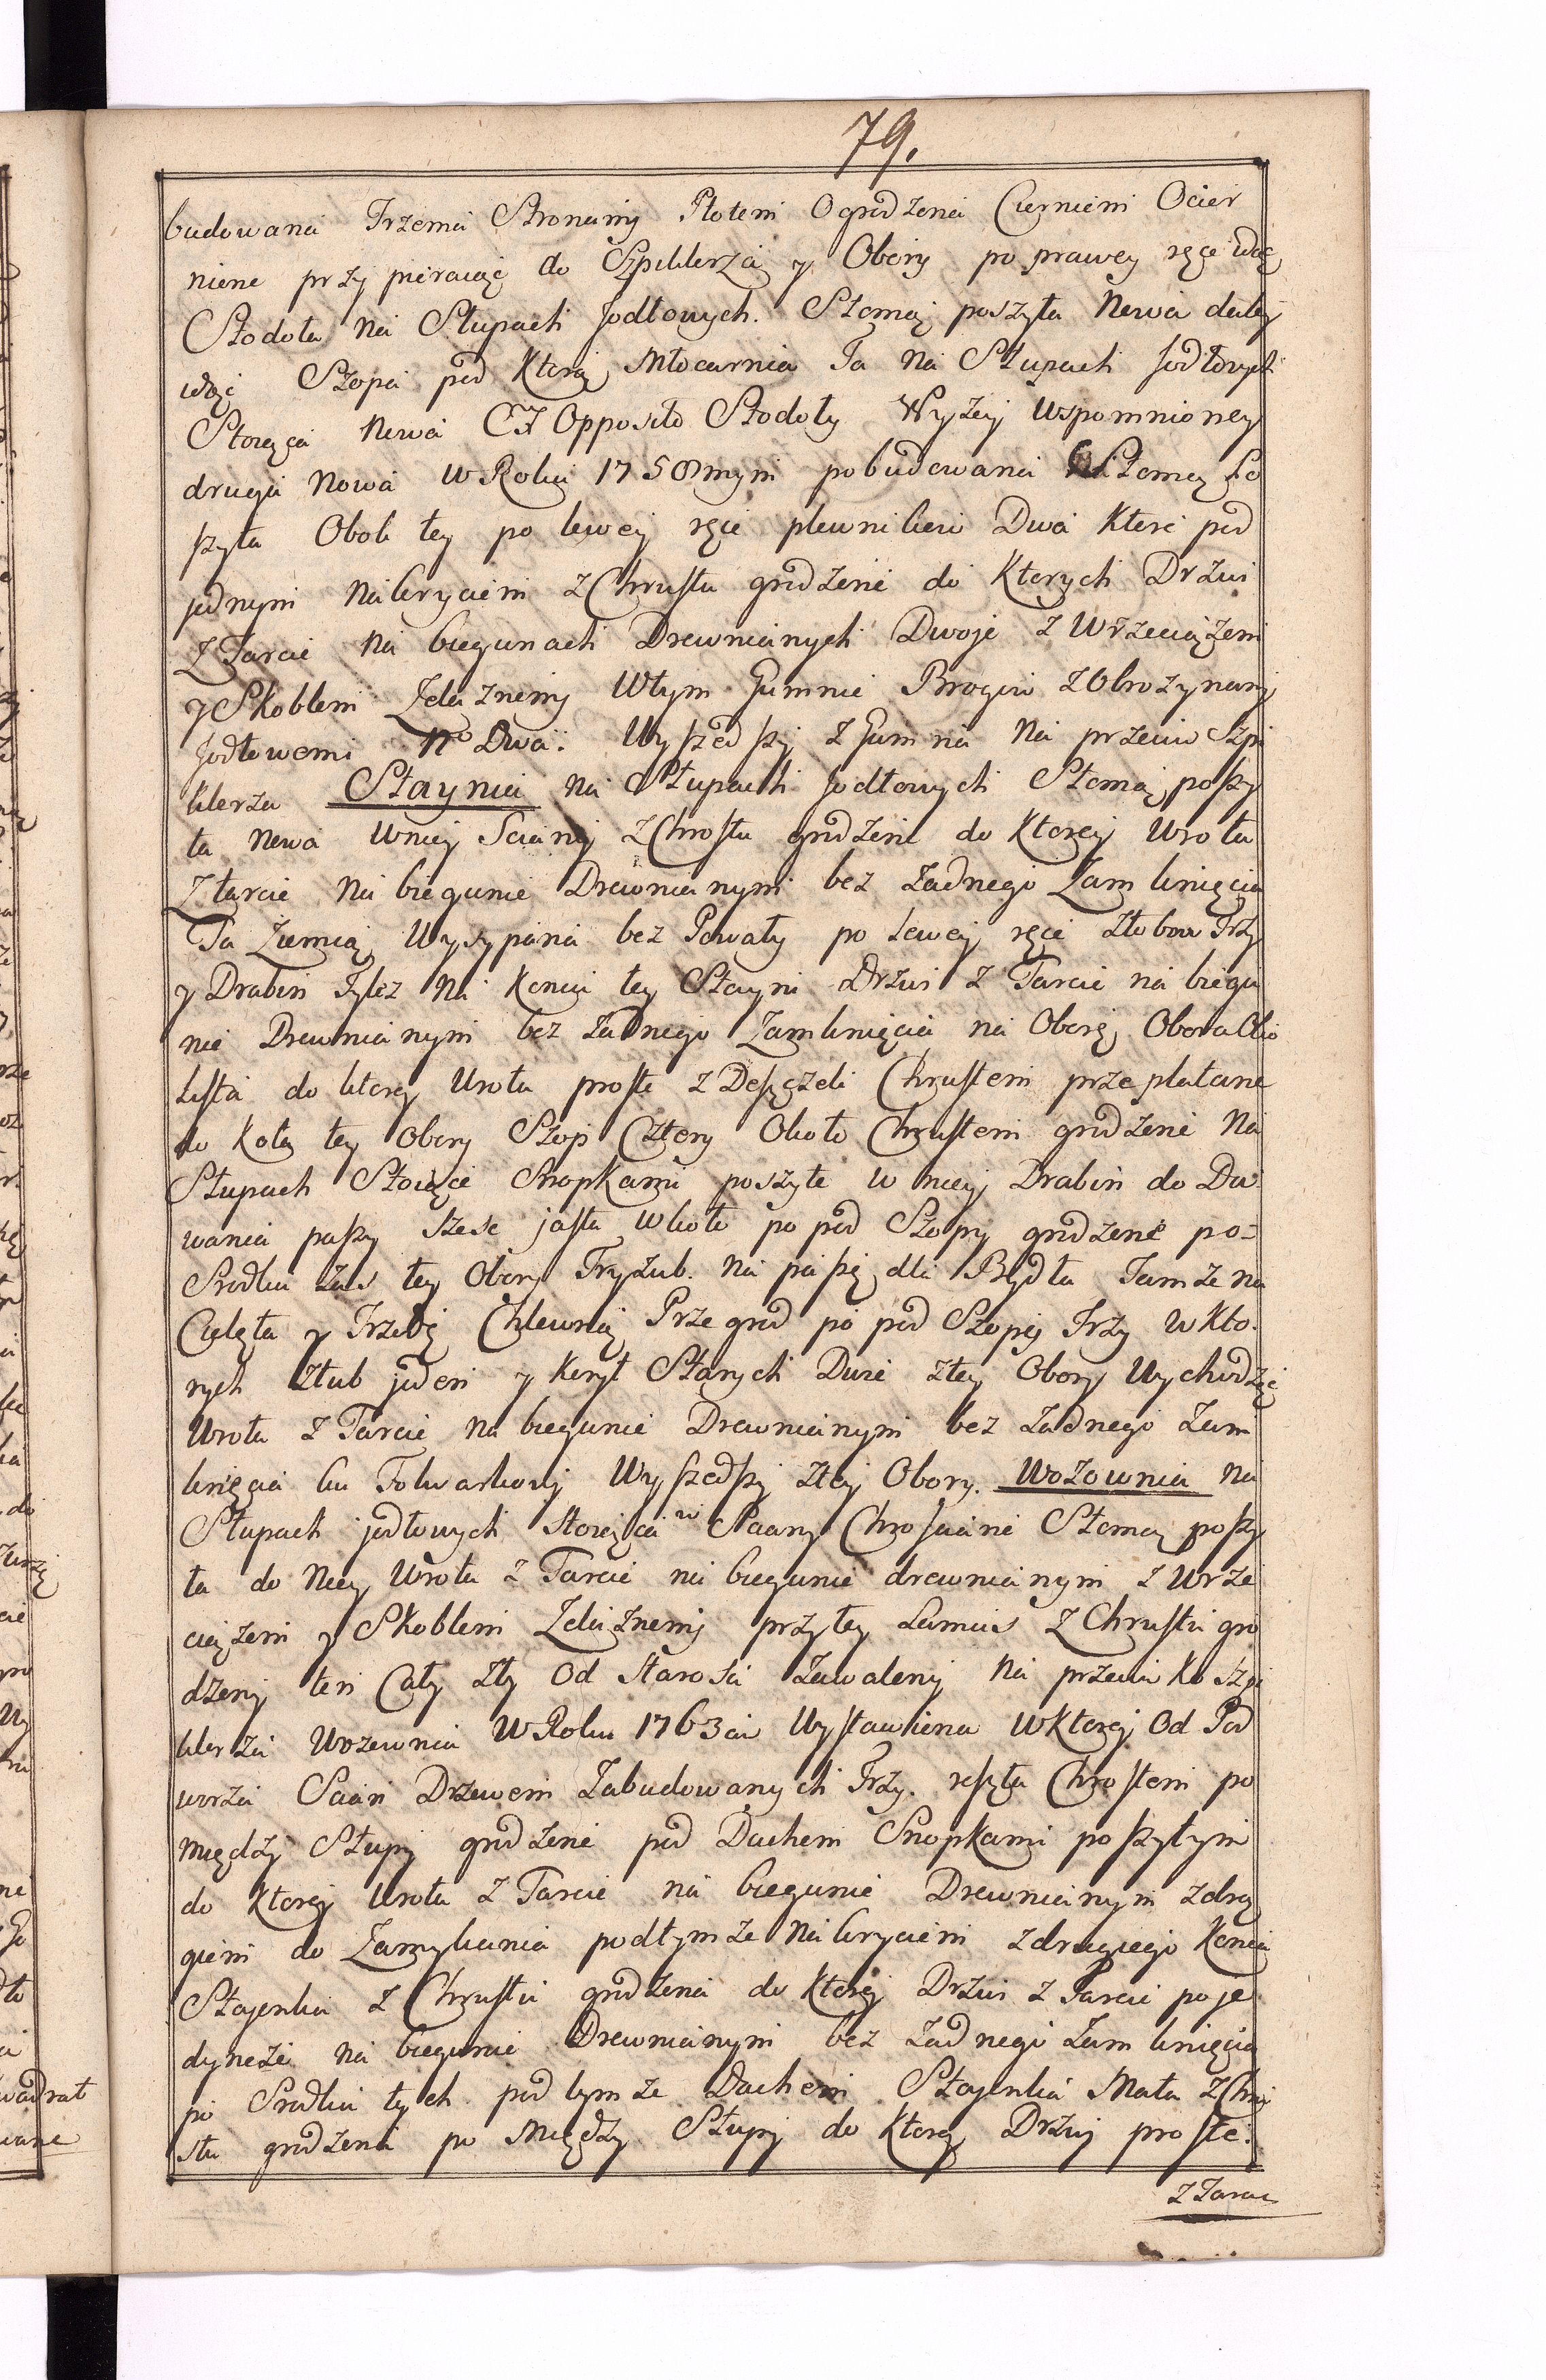 79.
budowana Trzema Stronamy Płotem Ogrodzena Cierniem Ocier
niene przypieraiąc do Szpiklerza y Obory po prawey ręce idąc
Stodoła na Słupach Jodłowych. Słomą poszyta Nowa daley
idąc Szopa pod Ktorą Młocarnia Ta na Słupach Jodłowych
Stoiąca Nowa Ex Opposito Stodoły Wyżey Wspomnioney
druga Nowa w Roku 1758mym pobudowana Słomą po
szyta Obok tey po lewey ręce plewnikow Dwa Ktore pod
jednym Nakryciem z Chrustu grodzone do Ktorych Drzwi
z Tarcic na biegunach Drewnianych Dwoje z Wrzeciążem
y Skoblem Zelaznemy W tym Gumnie Brogow z Obrożynamy
Jodłowemi No Dwa. Wyszedszy z Gumna Na przeciw Szpi
klerza Staynia na Słupach Jodłowych Słomą poszy
ta Nowa w niey Sciany z Chrostu grodzone do Ktorey Wrota
z tarcic na biegunie Drewnianym bez żadnego Zamknięcia
Ta Ziemią Wysypana bez Powały po Lewey ręce złobow Trzy
y Drabin Tylez Na Koncu tey Stayni Drzwi z Tarcic na biegu
nie Drewnianym bez żadnego Zamknięcia na Oborę Obora Oko
lista do ktorey Wrota proste z Deszczek Chrustem przeplatane
do Koła tey Obory Szop Cztery Około Chrustem grodzone Na
Słupach Stoiące Snopkami poszyte w niey Drabin do Da
wania paszy szesc jasła w koło po pod Szopy grodzone po=
Srodku zas tey Obory Try żłub. na paszę dla Bydła Tamze na
Cielęta y Trzodę Chlewnią Przegrod po pod Szopą Trzy w Kto.
rych złub jeden y Koryt Starych Dwie z tey Obory Wychodząc
Wrota z Tarcic na biegunie Drewnianym bez żadnego Zam
knięcia ku Folwarkowy Wyszedszy z tey Obory. Wozownia na
Słupach jodłowych stoiąca w Sciany Chrosciane Słomą poszy
ta do Niey Wrota z Tarcic na biegunie drewnianym z Wrze
ciążem y Skoblem Zelaznemy przy tey Lamus z Chrustu gro
dzony ten Cały zły Od starosci Zawalony Na przeciwko Szpi
klerza Wozownia w Roku 1763cim Wystawiona w Ktorey Od Pod
worza Scian Drzewem Zabudowanych Trzy. reszta Chrostem po
między Słupy grodzone pod Dachem Snopkami poszytym
do Ktorey Wrota z Tarcic na biegunie Drewnianym z drą
giem do Zamykania pod tymze Nakryciem z drugiego Konca
Stajenka z Chrustu grodzona do Ktorey Drzwi z Tarcic poje
dyncze na biegunie Drewnianym bez żadnego Zamknięcia
po Srodku tych pod tymze Dachem Stajenka Mała z Chro
stu grodzona po Między Słupy do Ktorey Drzwy proste.
z Tarcic